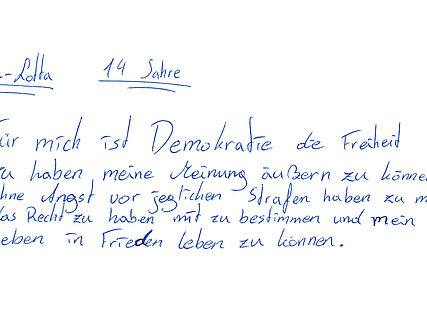 -Lotta 14 Jahre
ür mich ist Demokratie die Freiheit
u haben meine Meinung äußern zu könne
hne Angst vor jeglichen Strafen haben zu m
das Recht zu haben mit zu bestimmen und mein
eben in Frieden leben zu können.